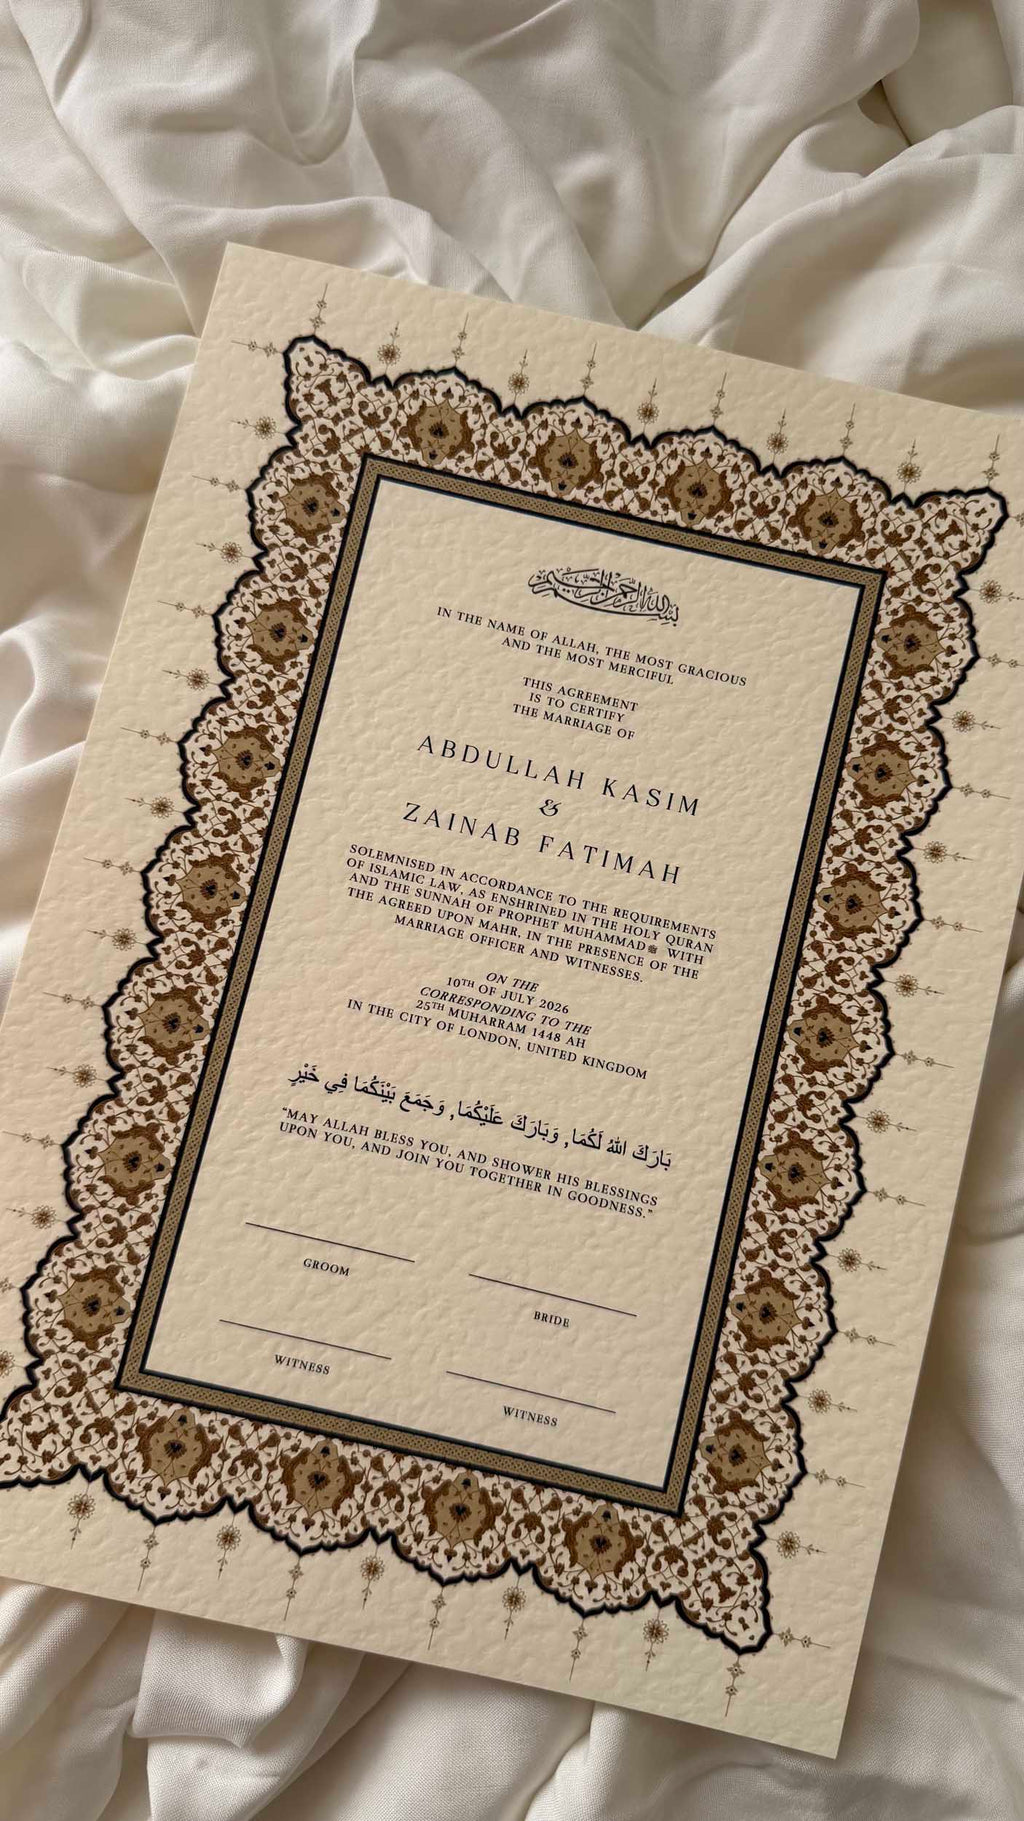 بسم الله الرحمن الرحيم
IN THE NAME OF ALLAH, THE MOST GRACIOUS
AND THE MOST MERCIFUL
THIS AGREEMENT
IS TO CERTIFY
THE MARRIAGE OF
ABDULLAH KASIM
&
ZAINAB FATIMAH
SOLEMNISED IN ACCORDANCE TO THE REQUIREMENTS
OF ISLAMIC LAW, AS ENSHRINED IN THE HOLY QURAN
AND THE SUNNAH OF PROPHET MUHAMMADﷺ WITH
THE AGREED UPON MAHR, IN THE PRESENCE OF THE
MARRIAGE OFFICER AND WITNESSES.
ON THE
10TH OF JULY 2026
CORRESPONDING TO THE
25TH MUHARRAM 1448 AH
IN THE CITY OF LONDON, UNITED KINGDOM
بَارَكَ اللهُ لَكُمَا, وَبَارَكَ عَلَيْكُمَا, وَجَمَعَ بَيْنَكُمَا فِي خَيْرٍ
“MAY ALLAH BLESS YOU, AND SHOWER HIS BLESSINGS
UPON YOU, AND JOIN YOU TOGETHER IN GOODNESS.”
GROOM
BRIDE
WITNESS
WITNESS